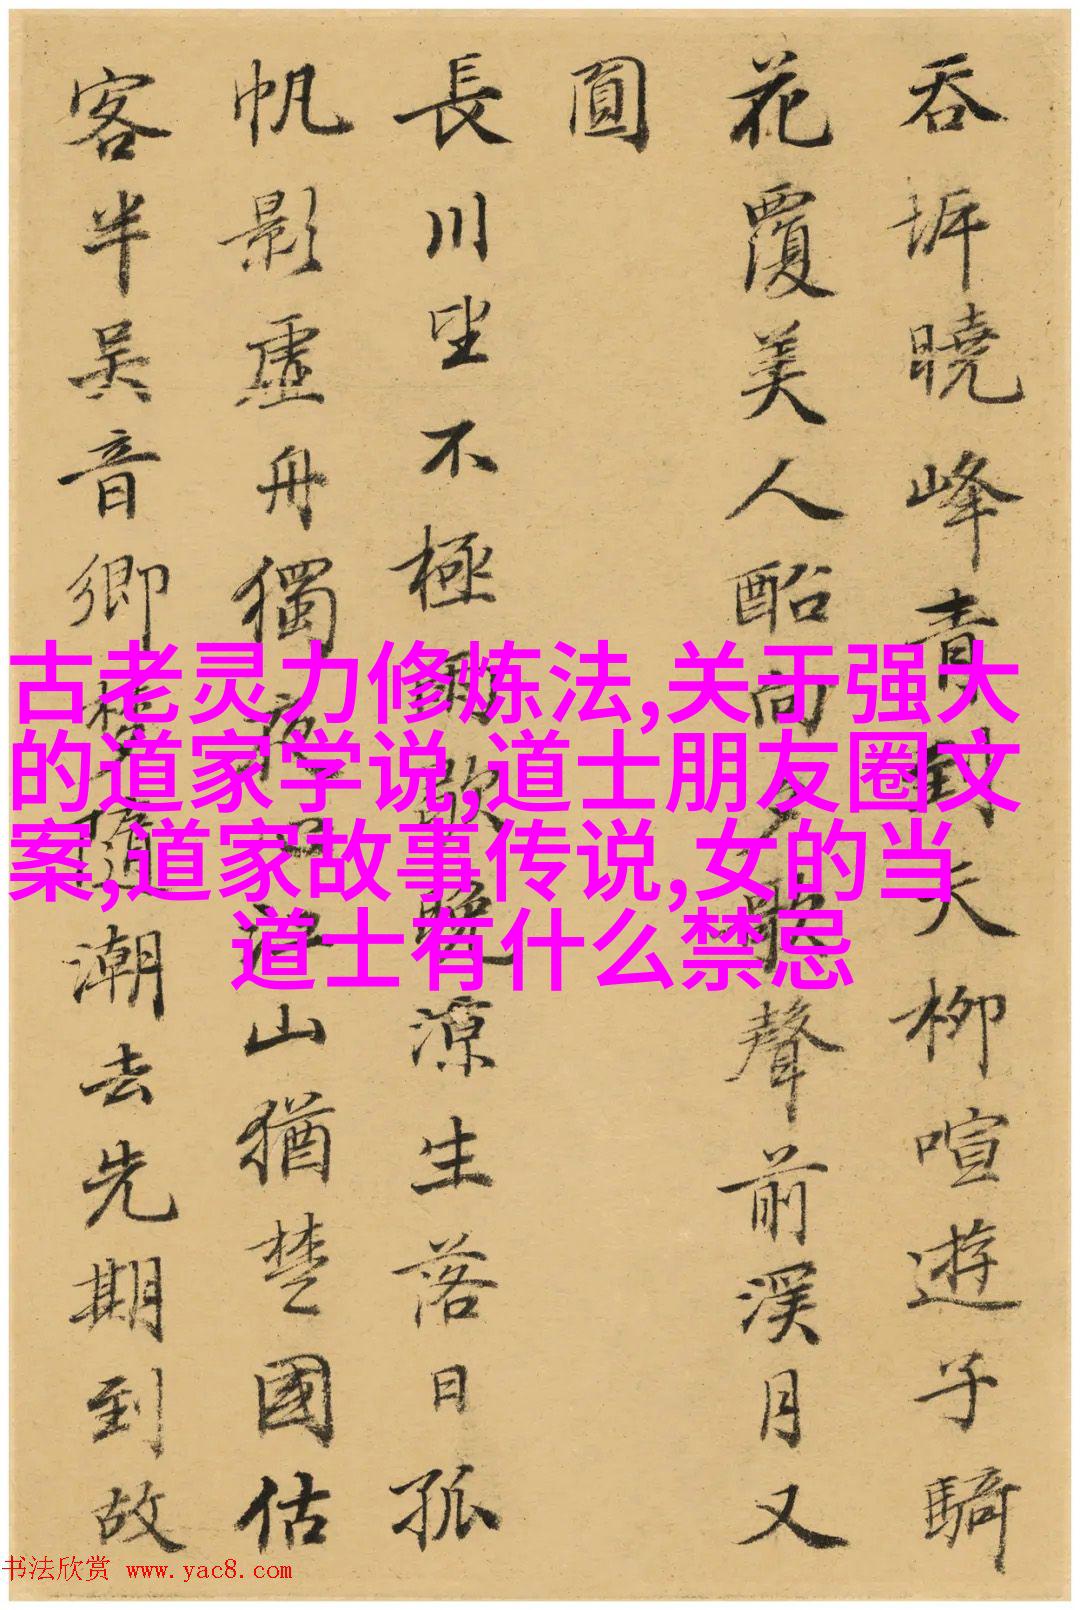 吞坼曉峰青對天柳喧遊子騎
花覆美人酩向夕歌聲前溪月又
圓
長川坐不極聊歌晚涼生落日孤
帆影虛舟獨夜江山猶楚國估
客半吴音鄉樹隨潮去先期到故
古老灵力修炼法,关于强大
的道家学说,道士朋友圈文
案,道家故事传说,女的当
道士有什么禁忌
书法欣赏 www.yac8.com